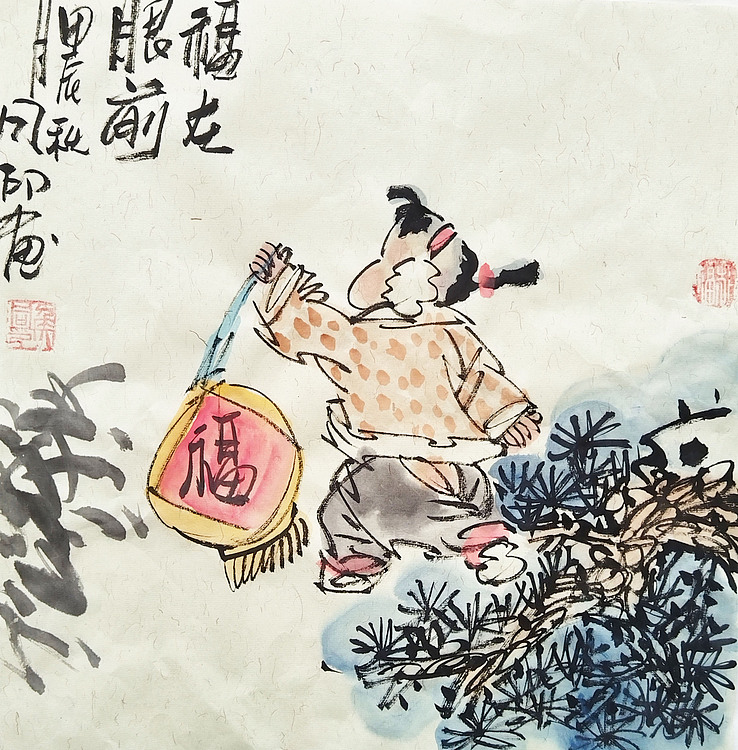 福在
眼前
甲辰秋
风印画
福